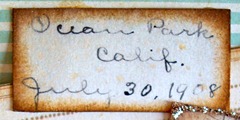 Ocean Park
Calif.
July 30, 1908